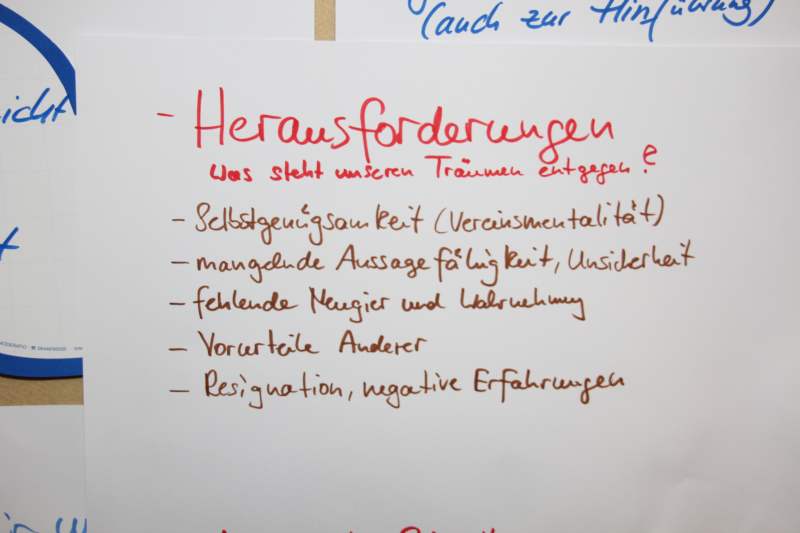 (auch zur Hinführung)
- Herausforderungen
Was steht unseren Träumen entgegen?
- Selbstgenügsamkeit (Vereinsmentalität)
- mangelnde Aussagefähigkeit, Unsicherheit
- fehlende Neugier und Wahrnehmung
- Vorurteile Anderer
- Resignation, negative Erfahrungen